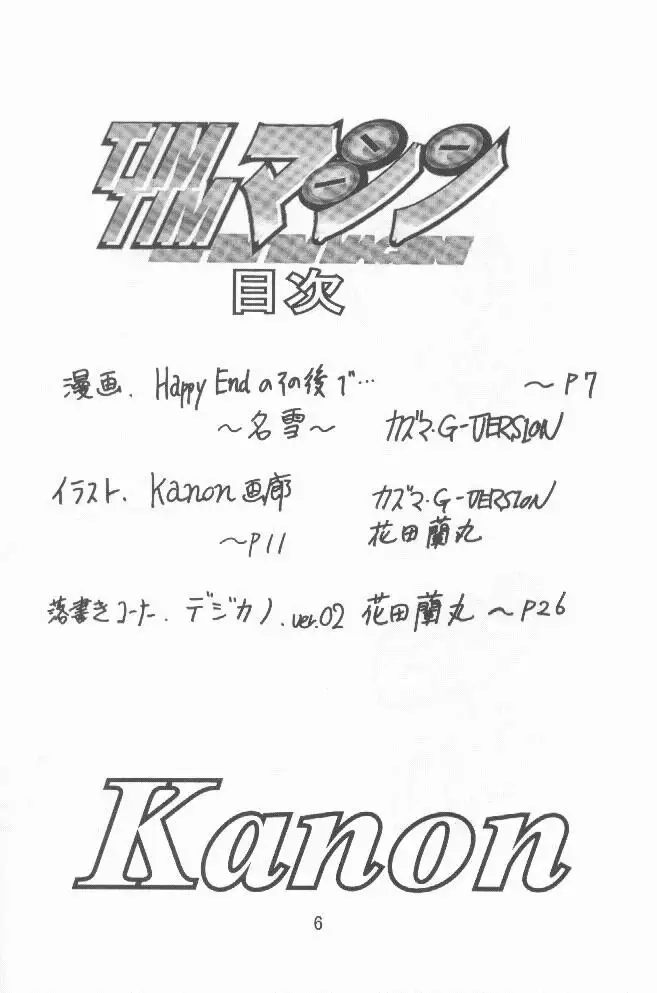 TIM
TIMマシン
目次
漫画、Happy Endのその後で… 〜P7
〜名雪〜 カズマ・G-VERSION
イラスト、Kanon画廊 カズマ・G-VERSION
花田蘭丸
〜P11
落書きコーナー、デジカノ.ver.02 花田蘭丸 〜P26
Kanon
6